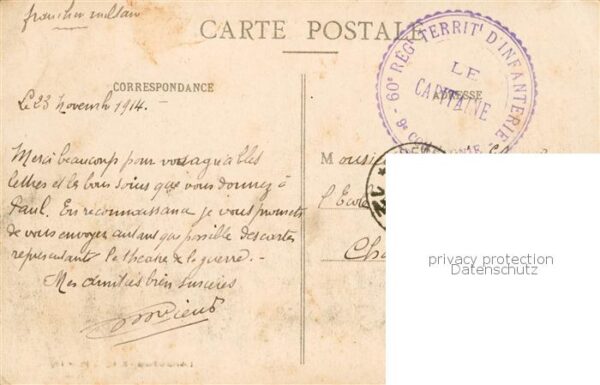 CARTE POSTALE
60e REGt TERRITl D'INFANTERIE
LE
CAPITAINE
9e COMPAGNIE
CORRESPONDANCE
ADRESSE
Le 23 Novembre 1914.
Merci beaucoup pour vos agréables
lettres et les bons soins que vous donnez à
Paul. En reconnaissance je vous promets
de vous envoyer autant que possible des cartes
représentant le théatre de la guerre. -
Mes amitiés bien sincères
Monsieu
l'Eco
Cha
privacy protection
Datenschutz